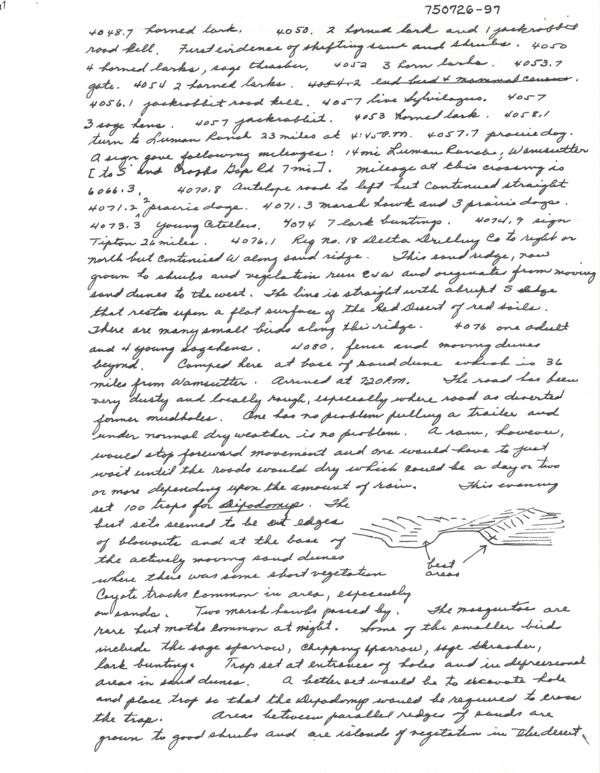 750726-97
4048.7 horned lark. 4050. 2 horned lark and 1 jackrabbit
road kill. First evidence of shifting sand and shrubs. 4050
4 horned larks, sage thrasher, 4052 3 horn larks. 4053.7
gate. 4054 2 horned larks. 4054.2 end bird & mammal census.
4056.1 jackrabbit road kill. 4057 live Sylvilagus. 4057
3 sage hens. 4057 jackrabbit. 4053 horned lark. 4058.1
turn to Luman Ranch 23 miles at 4:45P.M. 4057.7 prairie dog.
A sign gave following mileages: 14mi Luman Ranch, Wamsutter
[to S and Crooks Gap Rd 7mi]. mileage at this crossing is
6066.3. 4070.8 Antelope road to left but continued straight
4071.2 2 prairie dogs. 4071.3 marsh hawk and 3 prairie dogs.
4073.3 young Citellus. 4074 7 lark buntings. 4074.9 sign
Tipton 26 miles. 4076.1 Rig no. 18 Delta Drilling Co to right or
north but continued W along sand ridge. This sand ridge, now
grown to shrubs and vegetation run E&W and originates from moving
sand dunes to the west. The line is straight with abrupt S edge
that rests upon a flat surface of the Red Desert of red soils.
There are many small birds along this ridge. 4076 one adult
and 4 young sagehens. 4080. fence and moving dunes
beyond. Camped here at base of sand dune which is 36
miles from Wamsutter. Arrived at 720P.M. The road has been
very dusty and locally rough, especially where road as deserted
former mudholes. One has no problem pulling a trailer and
under normal dry weather is no problem. A rain, however,
would stop foreward movement and one would have to just
wait until the roads would dry which could be a day or two
or more depending upon the amount of rain. This evening
set 100 traps for Dipodomys. The
best sets seemed to be at edges
of blowouts and at the base of
the actively moving sand dunes
where there was some short vegetation
best
areas
Coyote tracks common in area, especially
on sands. Two marsh hawks passed by. The mosquitoe are
rare but moths common at night. Some of the smaller birds
include the sage sparrow, chipping sparrow, sage thrasher,
lark bunting. Trap set at entrance of holes and in depressional
areas in sand dunes. A better set would be to excavate hole
and place trap so that the Dipodomys would be required to cross
the trap. Areas between parallel ridges of sands are
grown to good shrubs and are islands of vegetation in the desert.